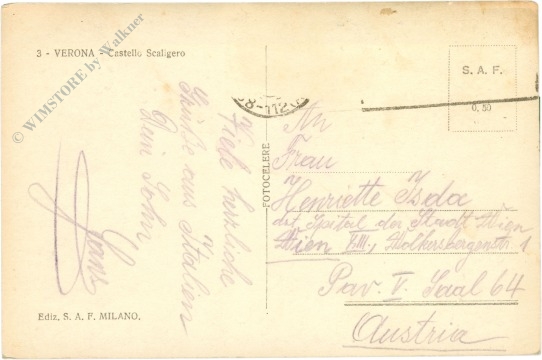 3 - VERONA - Castello Scaligero
© WIMSTORE by Walkner
Viele herzliche
Grüße aus Italien
Dein Sohn
Hans
Ediz. S. A. F. MILANO.
FOTOCELERE
S. A. F.
0,50
An
Frau
Henriette Isda
Spital der Stadt Wien
Wien XIII., Wolkersbergenstr 1
Pav. V. Saal 64
Austria